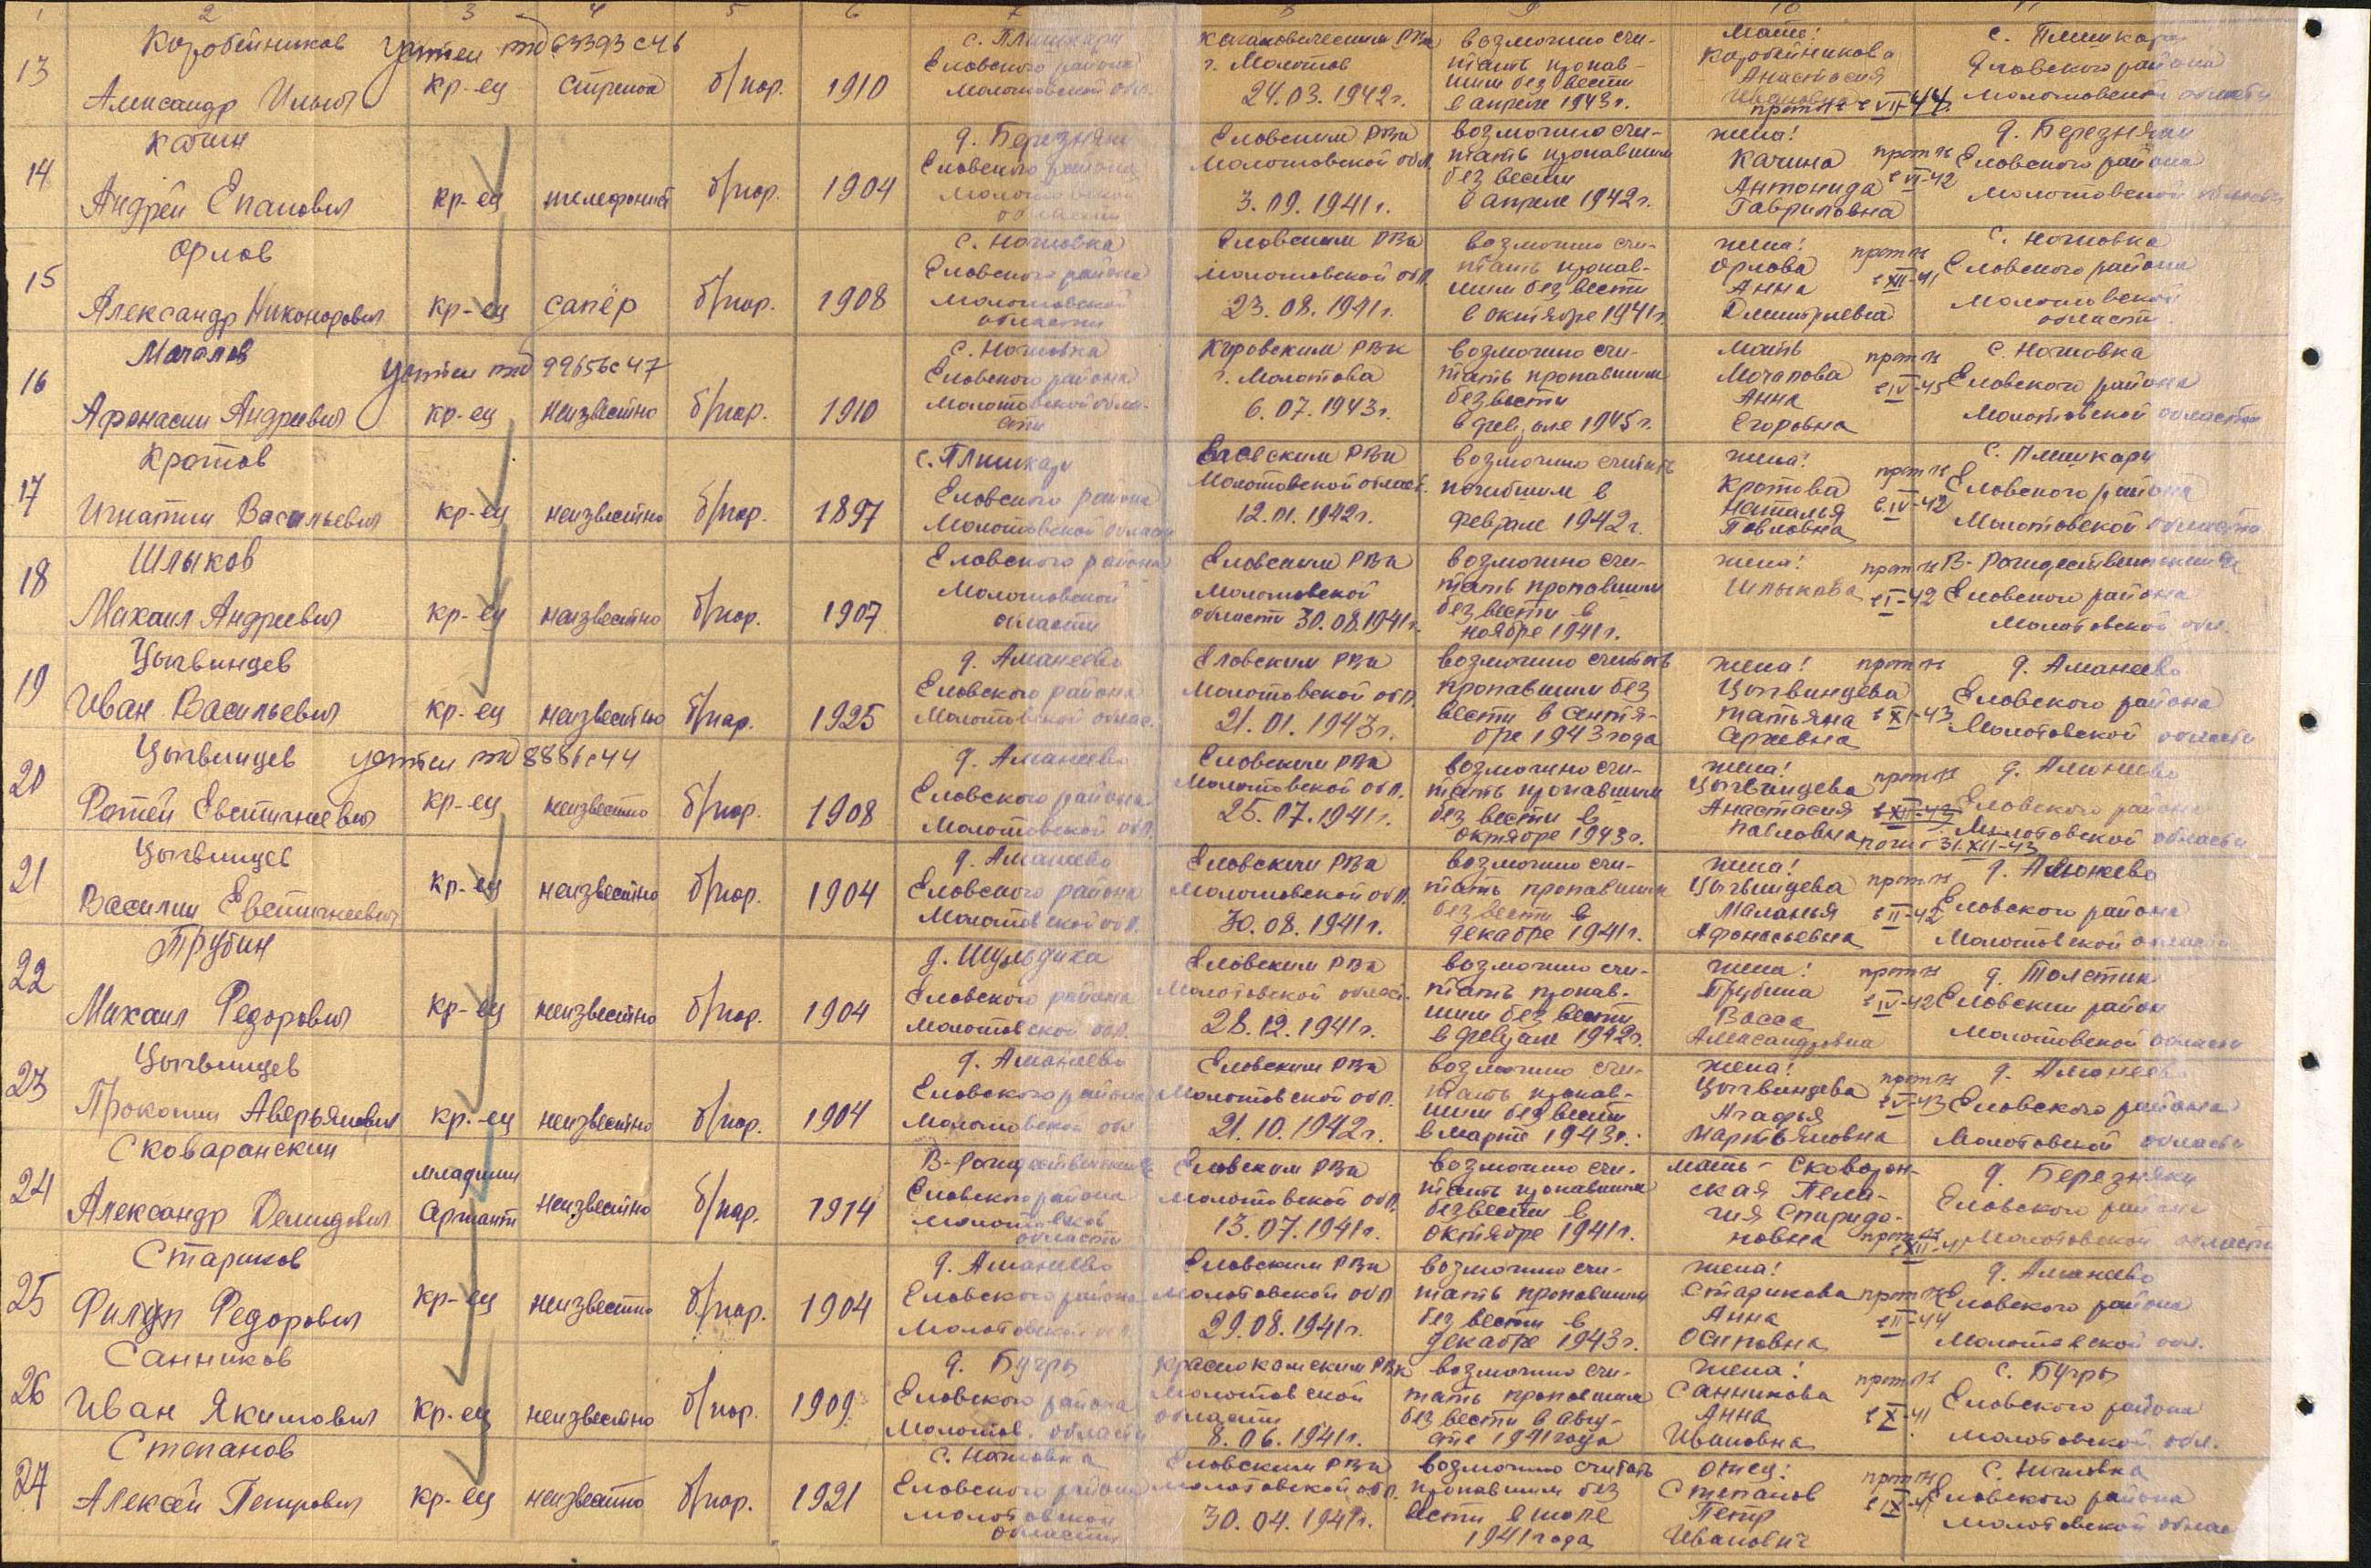 1 2 3 4 5 6 7 8 9 10 11
13 Коробейников Александр Ильич учтен 63393с46 кр-ец стрелок б/пар. 1910 с. Плишкари Еловского района Молотовской обл. Кагановическим РВК г. Молотов 24.03.1942г. возможно считать пропавшим без вести в апреле 1943г. мать: Коробейникова Анастасия Ивановна с VII-44 с. Плишкари Еловского района Молотовской области
14 Качин Андрей Епанович кр-ец телефонист б/пар. 1904 д. Березняки Еловского района Молотовской области Еловским РВК Молотовской обл. 3.09.1941г. возможно считать пропавшим без вести в апреле 1942г. жена: Качина Антонида Гавриловна с VI-42 д. Березняки Еловского района Молотовской области
15 Орлов Александр Никонорович кр-ец сапёр б/пар. 1908 с. Ножовка Еловского района Молотовской области Еловским РВК Молотовской обл. 23.08.1941г. возможно считать пропавшим без вести в октябре 1941г. жена: Орлова Анна Дмитриевна с XII-41 с. Ножовка Еловского района Молотовской области
16 Мачалов Афонасий Андреевич учтен 99656с47 кр-ец неизвестно б/пар. 1910 с. Ножовка Еловского района Молотовской области Кировским РВК г. Молотова 6.07.1943г. возможно считать пропавшим без вести в феврале 1945г. мать Мочалова Анна Егоровна с IV-45 с. Ножовка Еловского района Молотовской области
17 Кротов Игнатий Васильевич кр-ец неизвестно б/пар. 1897 с. Плишкари Еловского района Молотовской области Еловским РВК Молотовской област. 12.01.1942г. возможно считать погибшим в феврале 1942г. жена: Кротова Наталья Павловна с IV-42 с. Плишкари Еловского района Молотовской области
18 Шлыков Михаил Андреевич кр-ец неизвестно б/пар. 1907 Еловского района Молотовской области Еловским РВК Молотовской области 30.08.1941г. возможно считать пропавшим без вести в ноябре 1941г. жена: Шлыкова с I-42 В-Рождественский Еловского района Молотовской обл.
19 Цыгвинцев Иван Васильевич кр-ец неизвестно б/пар. 1925 д. Аманеево Еловского района Молотовской облас. Еловским РВК Молотовской обл. 21.01.1943г. возможно считать пропавшим без вести в сентябре 1943 года жена: Цыгвинцева Татьяна Сергеевна с XI-43 д. Аманеево Еловского района Молотовской области
20 Цыгвинцев Фотей Евстигнеевич учтен 8886с44 кр-ец неизвестно б/пар. 1908 д. Аманеево Еловского района Молотовской обл. Еловским РВК Молотовской обл. 25.07.1941г. возможно считать пропавшим без вести в октябре 1943г. жена: Цыгвинцева Анастасия Павловна с XII-43 погиб 31.XII-43 д. Аманеево Еловского района Молотовской области
21 Цыгвинцев Василий Евстигнеевич кр-ец неизвестно б/пар. 1904 д. Аманеево Еловского района Молотовской обл. Еловским РВК Молотовской обл. 30.08.1941г. возможно считать пропавшим без вести в декабре 1941г. жена: Цыгвинцева Маланья Афонасьевна с II-42 д. Аманеево Еловского района Молотовской области
22 Трубин Михаил Федорович кр-ец неизвестно б/пар. 1904 д. Шульдиха Еловского района Молотовской обл. Еловским РВК Молотовской област. 28.12.1941г. возможно считать пропавшим без вести в феврале 1942г. жена: Трубина Васса Александровна с IV-42 д. Толстик Еловский район Молотовской области
23 Цыгвинцев Прокопий Аверьянович кр.-ец неизвестно б/пар. 1904 д. Аманеево Еловского района Молотовской обл. Еловским РВК Молотовской обл. 21.10.1942г. возможно считать пропавшим без вести в марте 1943г. жена: Цыгвинцева Агафья Мартьяновна с V-43 д. Аманеево Еловского района Молотовской области
24 Сковаранский Александр Демидович младший сержант неизвестно б/пар. 1914 В-Рождественский Еловского района Молотовской области Еловским РВК Молотовской обл. 13.07.1941г. возможно считать пропавшим без вести в октябре 1941г. мать - Сковоронская Пелагия Спиридоновна с XII-41 д. Березняки Еловского района Молотовской области
25 Стариков Филип Федорович кр-ец неизвестно б/пар. 1904 д. Аманеево Еловского района Молотовской обл. Еловским РВК Молотовской обл. 29.08.1941г. возможно считать пропавшим без вести в декабре 1943г. жена: Старикова Анна Осиповна с II-44 д. Аманеево Еловского района Молотовской обл.
26 Санников Иван Якимович кр.-ец неизвестно б/пар. 1909 д. Бугры Еловского района Молотов. области Краснокамским РВК Молотовской области 8.06.1941г. возможно считать пропавшим без вести в августе 1941 года жена: Санникова Анна Ивановна с X-41 с. Бугры Еловского района Молотовской обл.
27 Степанов Алексей Петрович кр.-ец неизвестно б/пар. 1921 с. Ножовка Еловского района Молотовской области Еловским РВК Молотовской обл. 30.04.1941г. возможно считать пропавшим без вести в июле 1941 года отец: Степанов Петр Иванович с IX-41 с. Ножовка Еловского района Молотовской облас